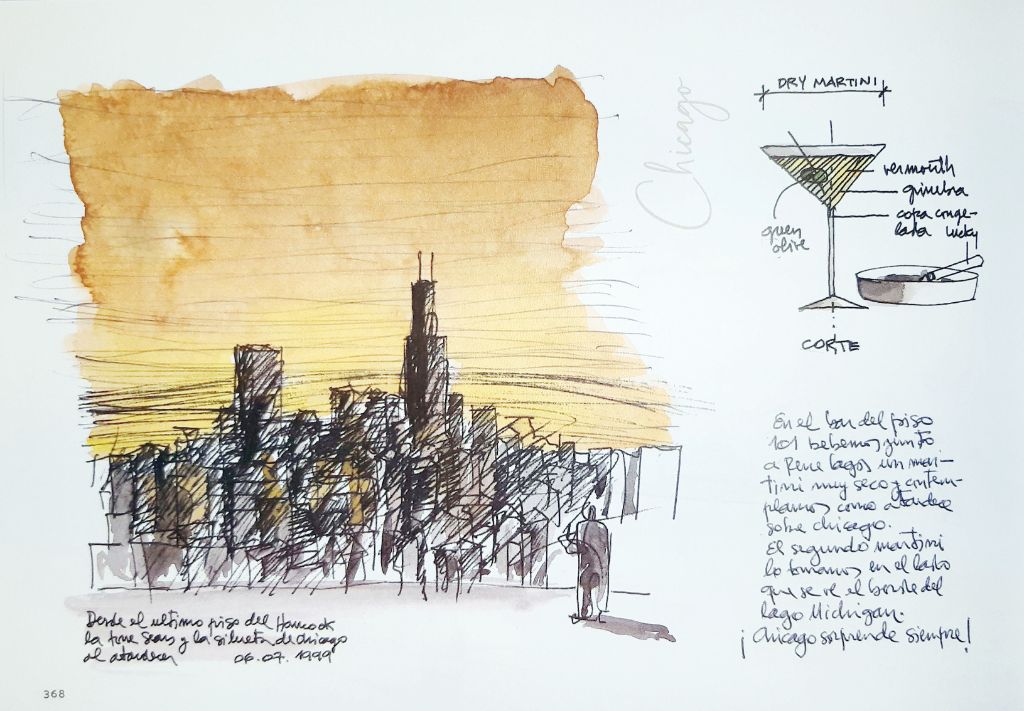 Chicago
DRY MARTINI
vermouth
ginebra
copa conge-
lada lucky
green
olive
CORTE
En el bar del piso
101 bebemos junto
a Rene Lagos un mar-
tini muy seco y contem-
plamos como atardece
sobre chicago.
El segundo martini
lo tomamos en el lado
que se ve el borde del
lago Michigan.
¡Chicago sorprende siempre!
Desde el ultimo piso del Hancock
la torre Sears y la silueta de chicago
al atardecer 06.07.1999
368